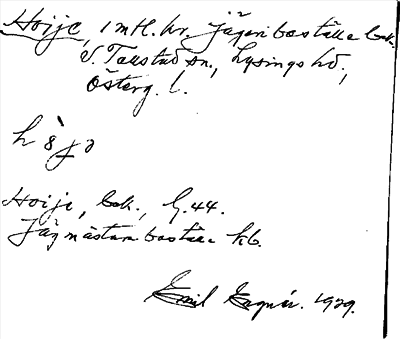 Hoije, 1 mtl. kr. jägariboställe bok.
V. Tollstad sn., Lysings hd.,
Österg. l.
Hoije, bok., G. 44.
Jägmästareboställe kb.
Emil 1929.